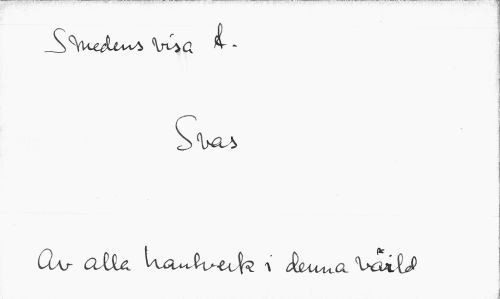 Smedens visa A.
Svas
Av alla hantverk i denna värld